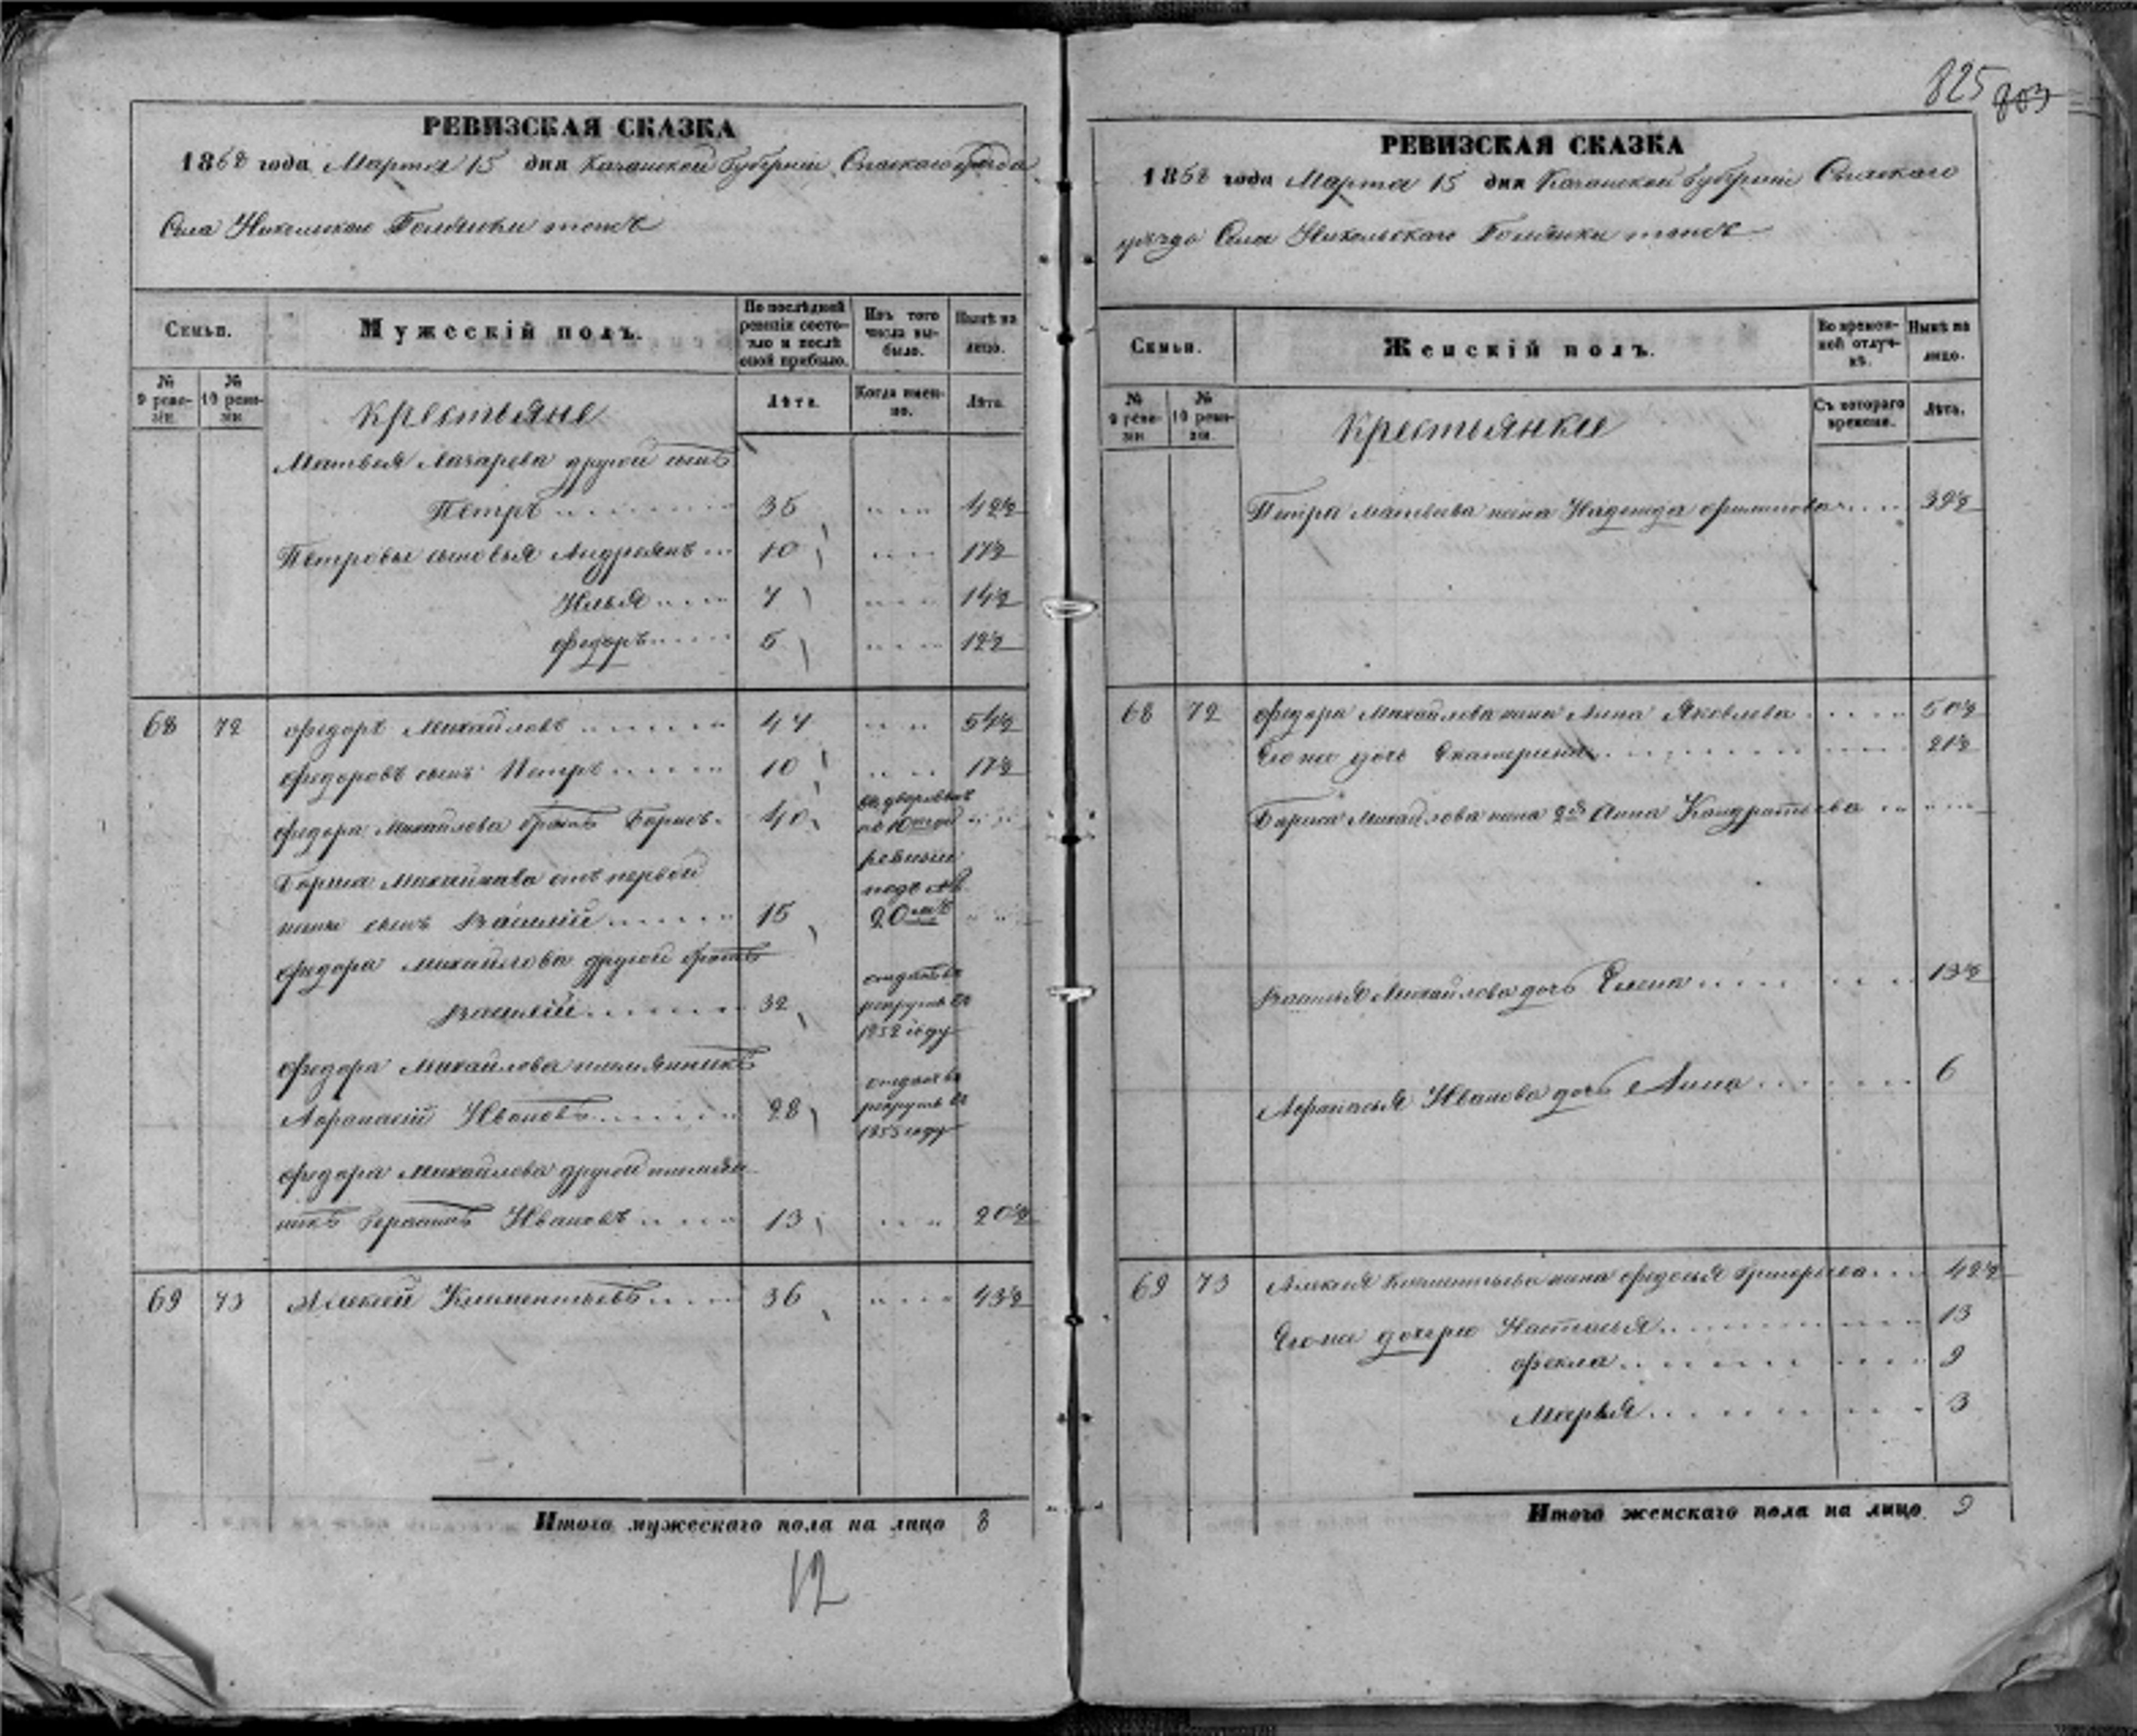 РЕВИЗСКАЯ СКАЗКА
1858 года Марта 15 дня Казанской Губернии Спаскаго уезда
Села Никольскаго Болдыки тожъ
Семьи.
Мужескій полъ.
По послѣдней ревизіи состояло и послѣ оной прибыло.
Изъ того числа выбыло.
Нынѣ на лицо.
№ 9 ревизіи.
№ 10 ревизіи.
крестьяне
Лѣта.
Когда именно.
Лѣта.
Матвея Лазарева другой сынъ
Петръ 35 42½
Петровы сыновья Андреянъ 10 17½
Илья 7 14½
федоръ 5 12½
68 72 федоръ Михайловъ 47 54½
федоровъ сынъ Петръ 10 17½
федора Михайлова братъ Борисъ 40
по 10 ревизии подъ № 20
Бориса Михайлова отъ первой
жены сынъ Василий 15
федора Михайлова другой братъ
Василий 32 отданъ въ рекруты въ 1852 году
федора Михайлова племянникъ
Афанасий Ивановъ 28 отданъ въ рекруты въ 1855 году
федора Михайлова другой племян
никъ Герасимъ Ивановъ 13 20½
69 73 Алексей Климентьевъ 36 43½
Итого мужескаго пола на лицо 8
12
825 803
РЕВИЗСКАЯ СКАЗКА
1858 года Марта 15 дня Казанской Губернии Спаскаго
уезда Села Никольскаго Болдыки тожъ
Семьи.
Женскій полъ.
Во временной отлучкѣ.
Нынѣ на лицо.
№ 9 ревизіи.
№ 10 ревизіи.
Крестьянки
Съ котораго времени.
Лѣта.
Петра Матвеева жена Надежда филипова 39½
68 72 федора Михайлова жена Анна Яковлева 50½
Его же дочь Екатерина 21½
Бориса Михайлова жена 2я Анна Кондратьева
Василья Михайлова дочь Елена 13½
Афанасья Иванова дочь Анна 6
69 73 Алексея Климентьева жена федосья Григорьева 42½
Его же дочери Настасья 13
фекла 9
Марья 3
Итого женскаго пола на лицо 9